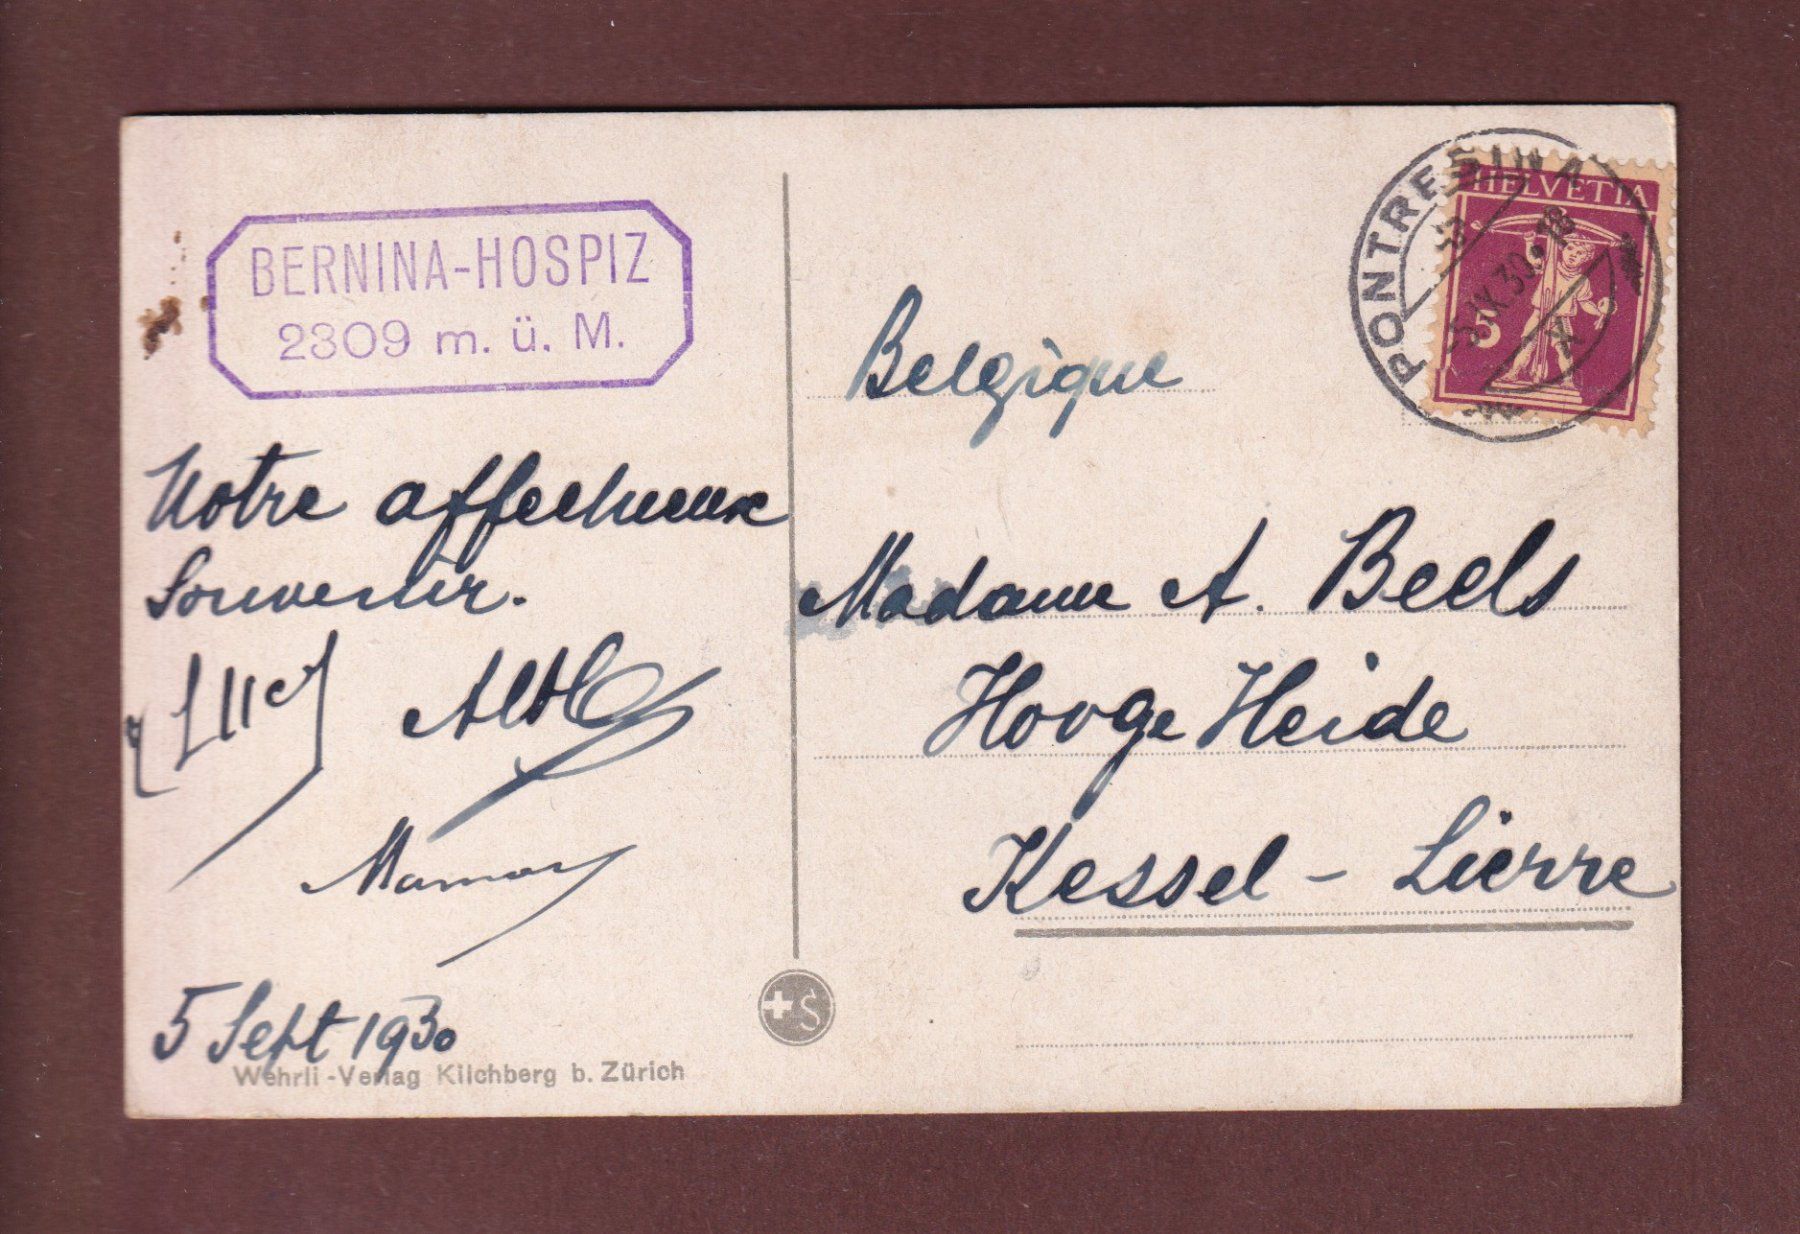 BERNINA-HOSPIZ
2309 m. ü. M.
Notre affectueux
Souvenir.
5 Sept 1930
Wehrli-Verlag Kilchberg b. Zürich
+S
PONTRESINA
5.IX.30.18
HELVETIA
5
Belgique
Madame A. Beels
Hooge Heide
Kessel - Lierre